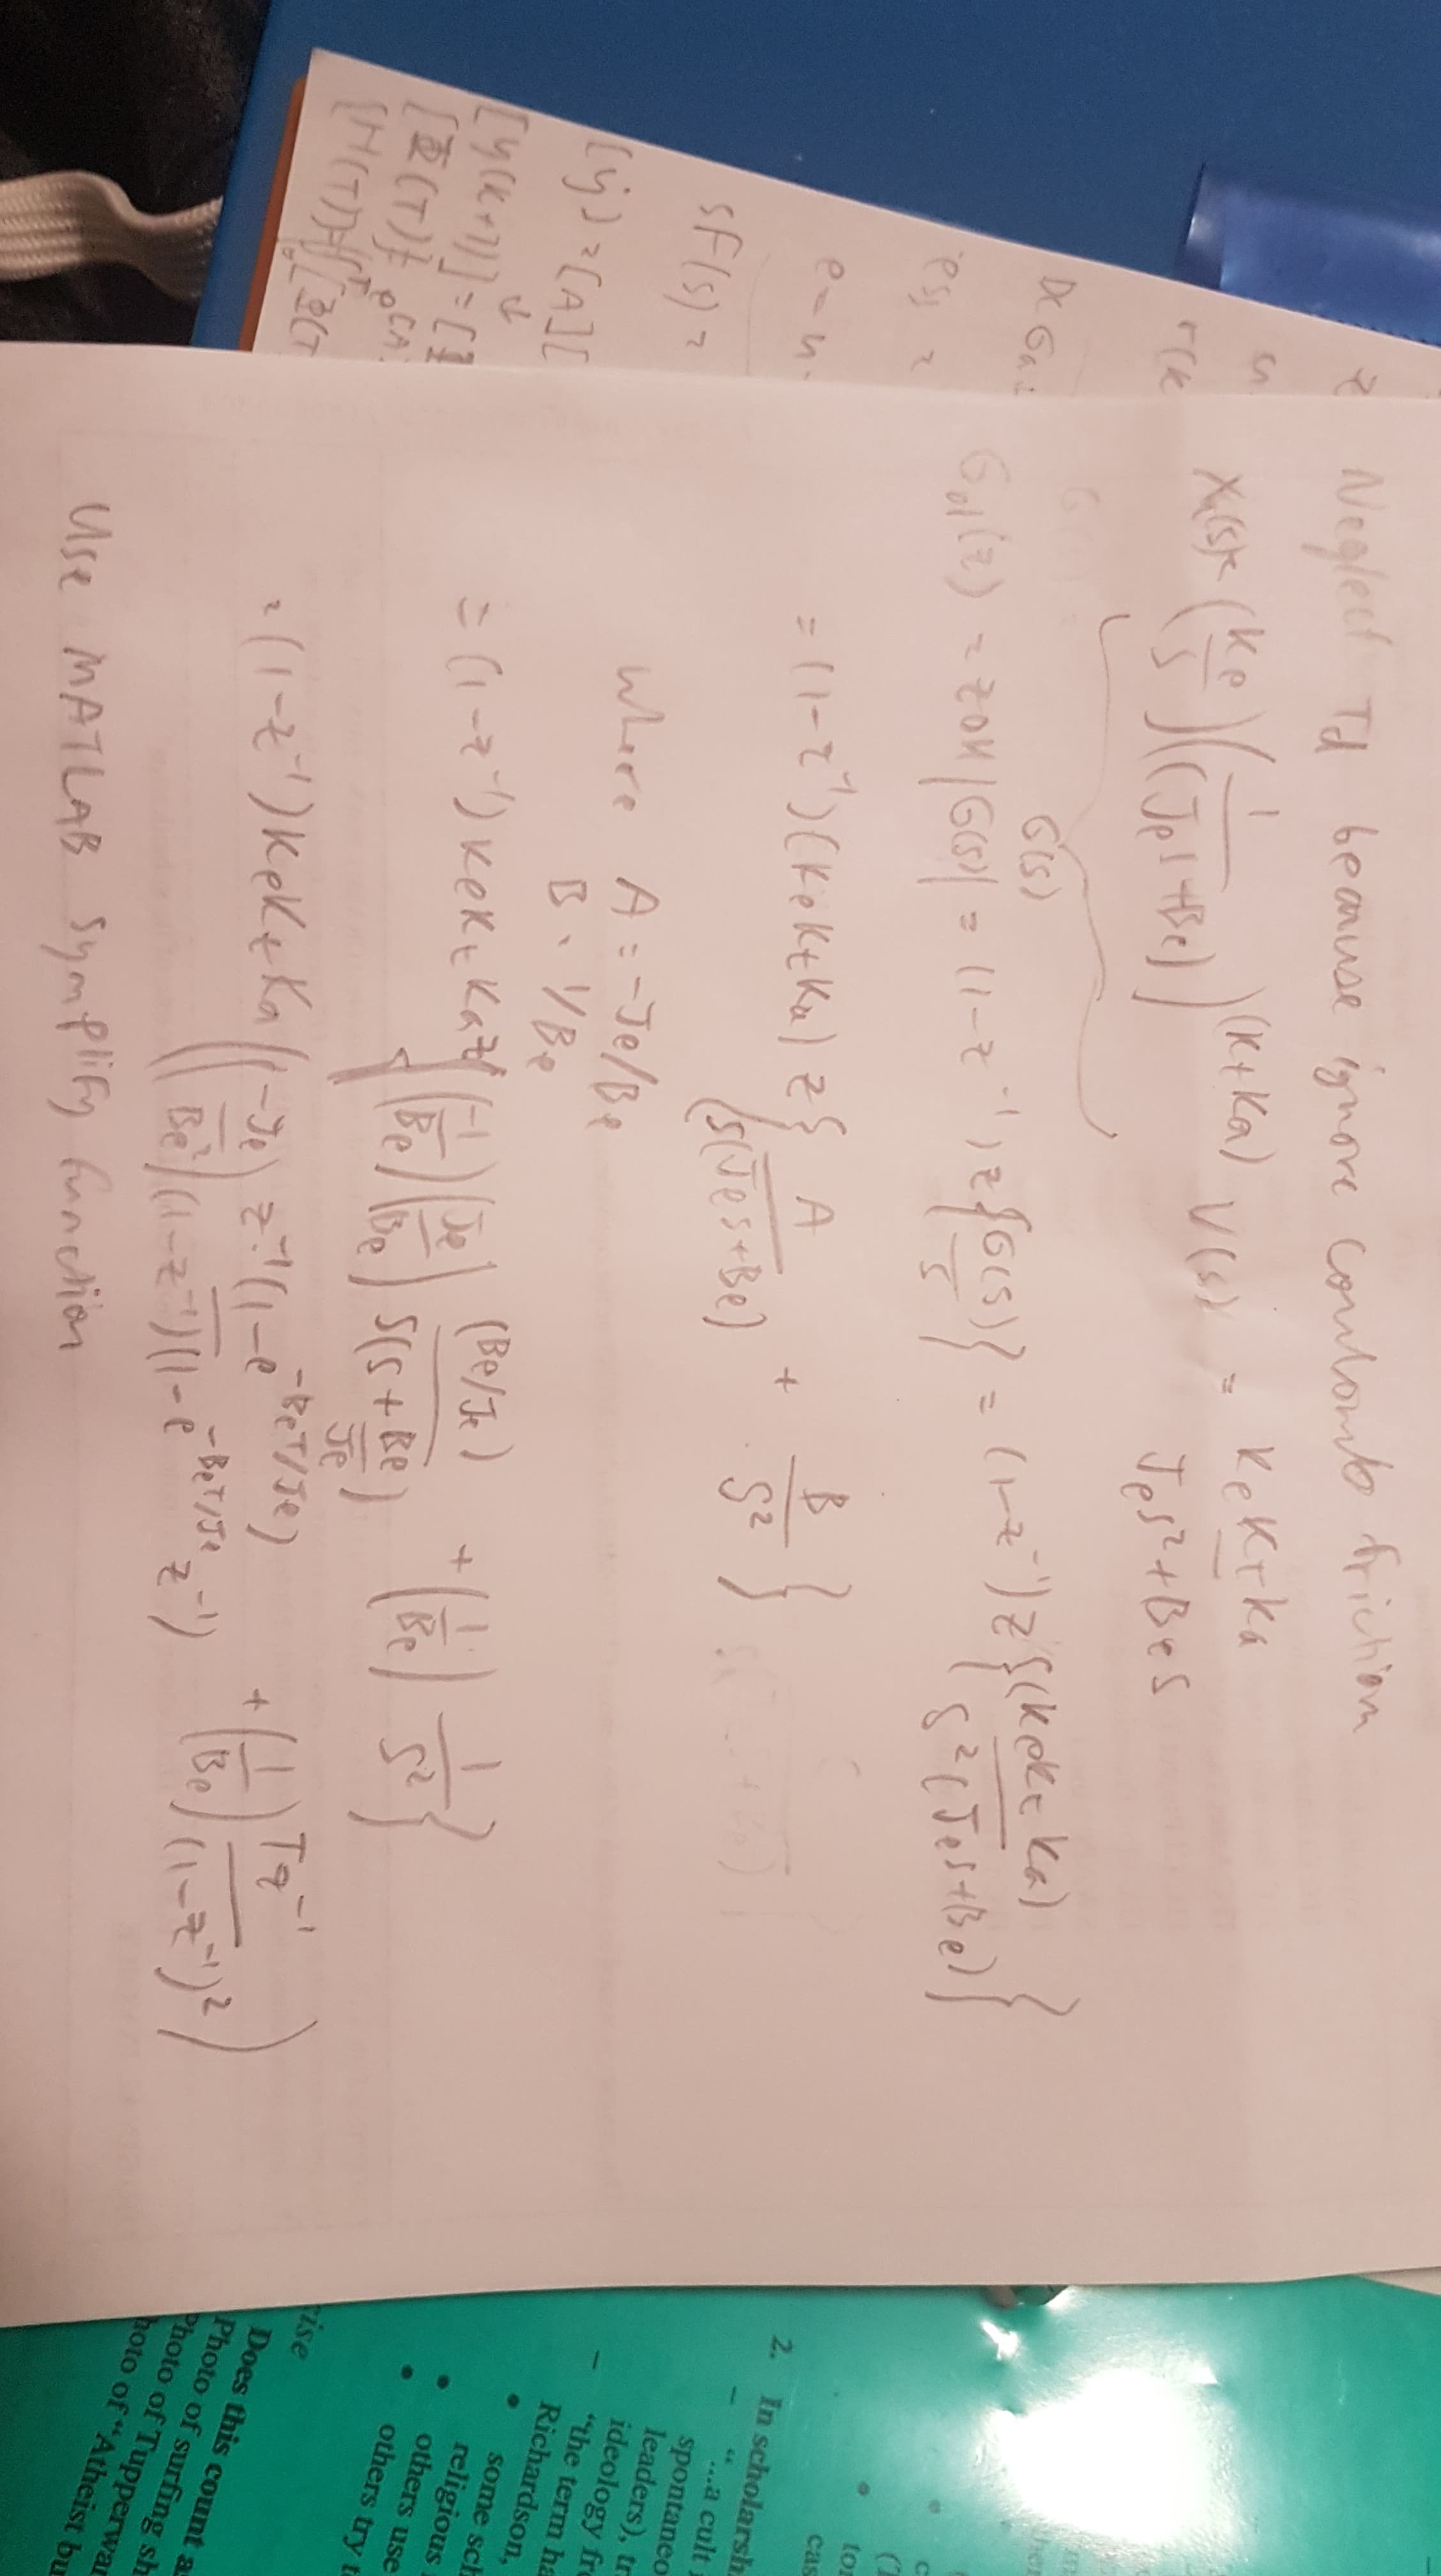 Neglect Td because ignore coulomb friction
Xa(s) = (Ke/s)(1/(Jes+Be))(KtKa) V(s) = KeKtKa/(Jes²+Bes)
G(s)
Gd1(z) = ZOH|G(s)| = (1-z⁻¹)z{G(s)/s} = (1-z⁻¹)z{(KeKtKa)/(s²(Jes+Be))}
= (1-z⁻¹)(KeKtKa) z{A/(s(Jes+Be)) + B/s²}
where A = -Je/Be
B = 1/Be
= (1-z⁻¹)KeKtKa z{(-1/Be)(Je/Be) (Be/Je)/(s(s+Be/Je)) + (1/Be) 1/s²}
= (1-z⁻¹)KeKtKa((-Je/Be²) z⁻¹(1-e^(-BeT/Je))/((1-z⁻¹)(1-e^(-BeT/Je) z⁻¹)) + (1/Be) Tz⁻¹/(1-z⁻¹)²)
Use MATLAB symplify function
z
u
r(k
ess =
e-u
sF(s) =
[ẏ] = [A][
[y(k+1)] = [
2. In scholarsh
– "…a cult
spontaneo
leaders), tr
ideology fr
– "the term ha
Richardson,
• some sch
religious
• others use
• others try t
Does this count a
Photo of surfing sh
Photo of Tupperwar
hoto of "Atheist bu